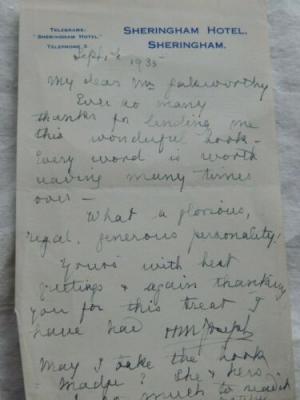 TELEGRAMS:
"SHERINGHAM HOTEL"
TELEPHONE 5
SHERINGHAM HOTEL,
SHERINGHAM.
Sept 1935
My dear Mr
Ever so many
thanks for lending me
this wonderful book -
Every word is worth
many times
over -
What a glorious,
regal, generous personality.
Yours with best
& again thanking
you for this treat I
have had
May I take the book
? She & hers
so much to read it